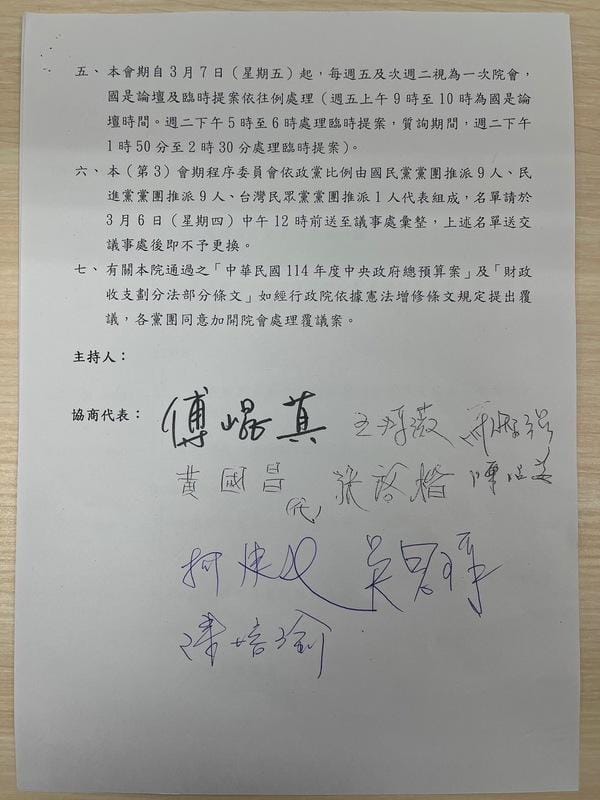 五、本會期自3月7日（星期五）起，每週五及次週二視為一次院會，
國是論壇及臨時提案依往例處理（週五上午9時至10時為國是論
壇時間。週二下午5時至6時處理臨時提案，質詢期間，週二下午
1時50分至2時30分處理臨時提案）。
六、本（第3）會期程序委員會依政黨比例由國民黨黨團推派9人、民
進黨黨團推派9人、台灣民眾黨黨團推派1人代表組成，名單請於
3月6日（星期四）中午12時前送至議事處彙整，上述名單送交
議事處後即不予更換。
七、有關本院通過之「中華民國114年度中央政府總預算案」及「財政
收支劃分法部分條文」如經行政院依據憲法增修條文規定提出覆
議，各黨團同意加開院會處理覆議案。
主持人：
協商代表：傅崐萁 王鴻薇
黃國昌（代）張啓楷
柯建銘 吳思瑤
陳培瑜